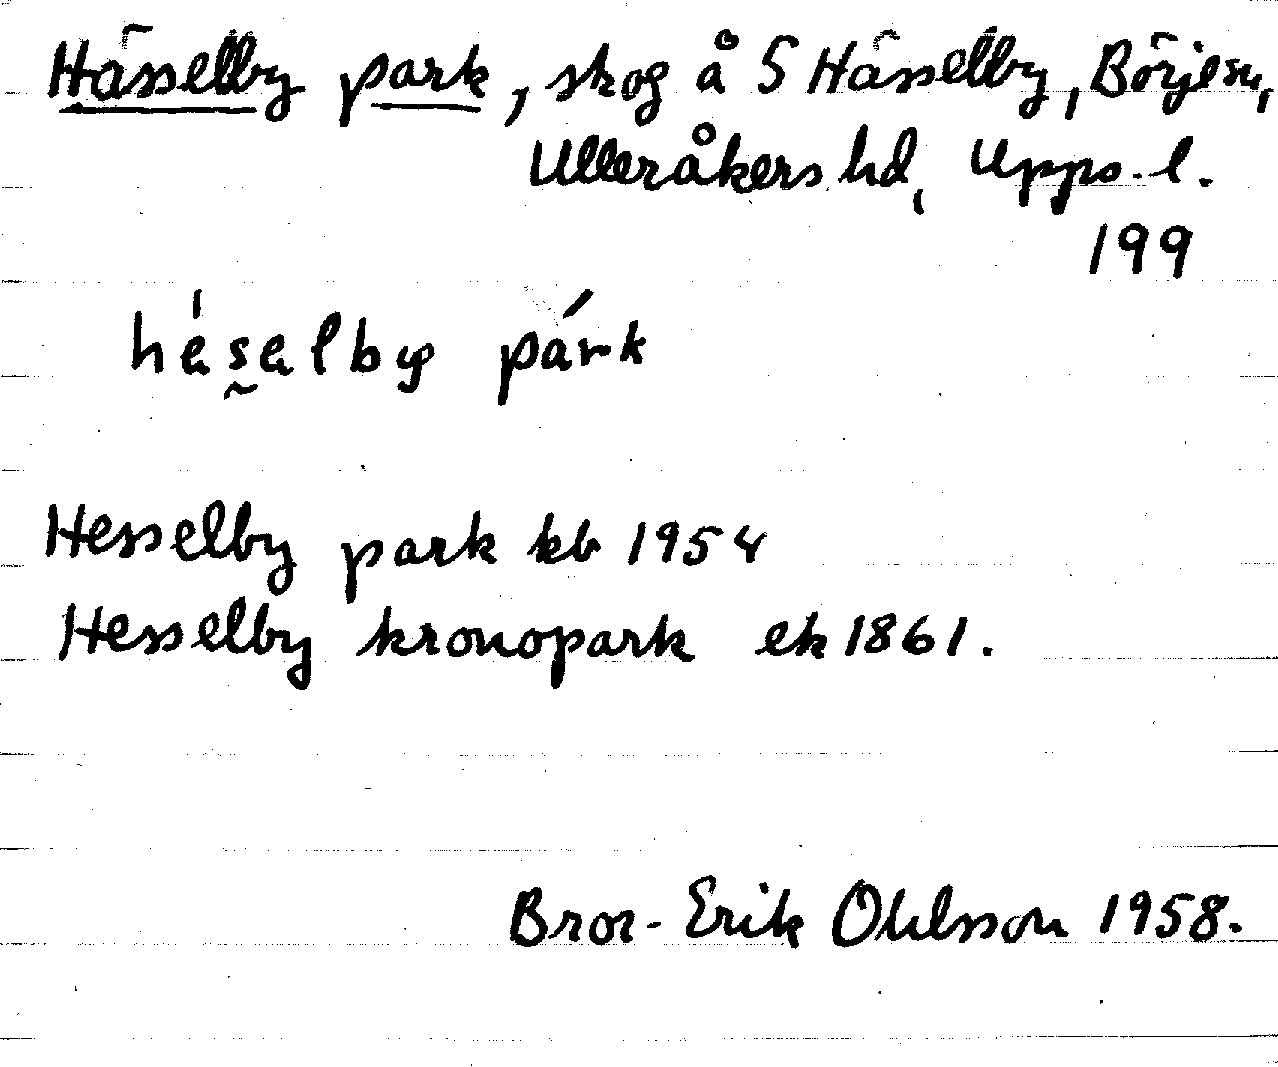 Hässelby park, skog å S Hässelby, Börjesn,
Ulleråkers hd, Upps. l.
199
hésəlby párk
Hesselby park kb 1954
Hesselby kronopark ek 1861.
Bror-Erik Ohlsson 1958.